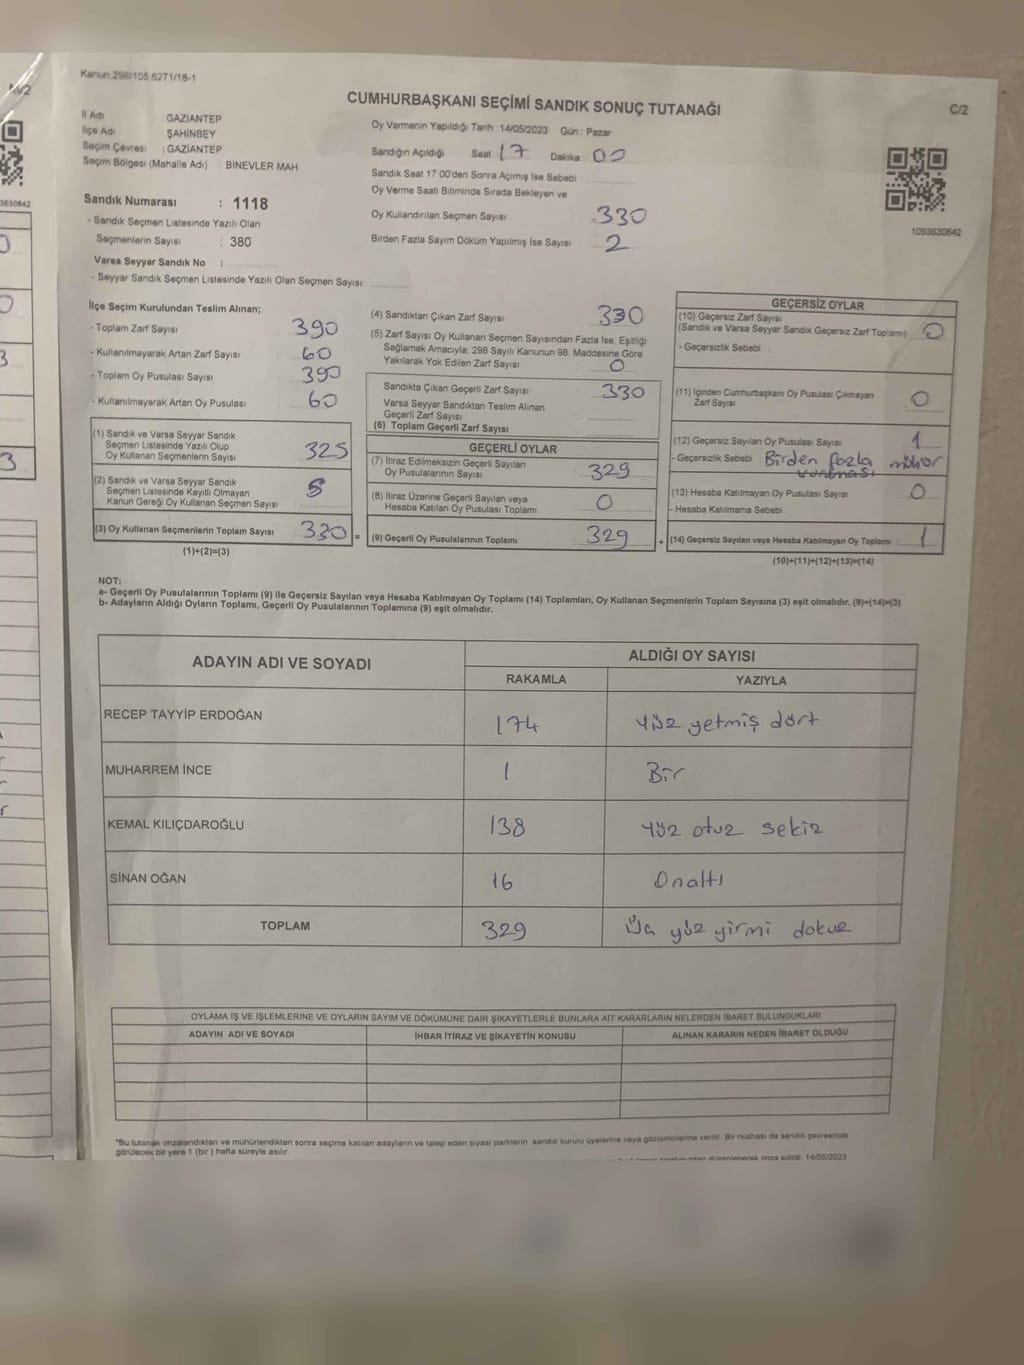 Kanun:298/105.6271/18-1
CUMHURBAŞKANI SEÇİMİ SANDIK SONUÇ TUTANAĞI
C/2
İl Adı GAZİANTEP
İlçe Adı ŞAHİNBEY
Seçim Çevresi : GAZİANTEP
Seçim Bölgesi (Mahalle Adı) : BİNEVLER MAH
Oy Vermenin Yapıldığı Tarih : 14/05/2023 Gün : Pazar
Sandığın Açıldığı Saat 17 Dakika : 00
Sandık Saat 17:00'den Sonra Açımış İse Sebebi :
Oy Verme Saati Bitiminde Sırada Bekleyen ve
Oy Kullandırılan Seçmen Sayısı 330
Birden Fazla Sayım Döküm Yapılmış İse Sayısı 2
1093630642
Sandık Numarası : 1118
- Sandık Seçmen Listesinde Yazılı Olan
Seçmenlerin Sayısı : 380
Varsa Seyyar Sandık No :
- Seyyar Sandık Seçmen Listesinde Yazılı Olan Seçmen Sayısı:
İlçe Seçim Kurulundan Teslim Alınan;
- Toplam Zarf Sayısı 390
- Kullanılmayarak Artan Zarf Sayısı 60
- Toplam Oy Pusulası Sayısı 390
- Kullanılmayarak Artan Oy Pusulası 60
(1) Sandık ve Varsa Seyyar Sandık
Seçmen Listesinde Yazılı Olup
Oy Kullanan Seçmenlerin Sayısı 325
(2) Sandık ve Varsa Seyyar Sandık
Seçmen Listesinde Kayıtlı Olmayan
Kanun Gereği Oy Kullanan Seçmen Sayısı 5
(3) Oy Kullanan Seçmenlerin Toplam Sayısı 330 =
(1)+(2)=(3)
(4) Sandıktan Çıkan Zarf Sayısı 330
(5) Zarf Sayısı Oy Kullanan Seçmen Sayısından Fazla İse, Eşitliği
Sağlamak Amacıyla; 298 Sayılı Kanunun 98. Maddesine Göre
Yakılarak Yok Edilen Zarf Sayısı : 0
Sandıkta Çıkan Geçerli Zarf Sayısı 330
Varsa Seyyar Sandıktan Teslim Alınan
Geçerli Zarf Sayısı
(6) Toplam Geçerli Zarf Sayısı
GEÇERLİ OYLAR
(7) İtiraz Edilmeksizin Geçerli Sayılan
Oy Pusulalarının Sayısı 329
(8) İtiraz Üzerine Geçerli Sayılan veya
Hesaba Katılan Oy Pusulası Toplamı 0
(9) Geçerli Oy Pusulalarının Toplamı 329 +
GEÇERSİZ OYLAR
(10) Geçersiz Zarf Sayısı
(Sandık ve Varsa Seyyar Sandık Geçersiz Zarf Toplamı) 0
- Geçersizlik Sebebi :
(11) İçinden Cumhurbaşkanı Oy Pusulası Çıkmayan
Zarf Sayısı 0
(12) Geçersiz Sayılan Oy Pusulası Sayısı 1
- Geçersizlik Sebebi Birden fazla mühür
vurulması
(13) Hesaba Katılmayan Oy Pusulası Sayısı 0
- Hesaba Katılmama Sebebi
(14) Geçersiz Sayılan veya Hesaba Katılmayan Oy Toplamı 1
(10)+(11)+(12)+(13)=(14)
NOT:
a- Geçerli Oy Pusulalarının Toplamı (9) ile Geçersiz Sayılan veya Hesaba Katılmayan Oy Toplamı (14) Toplamları, Oy Kullanan Seçmenlerin Toplam Sayısına (3) eşit olmalıdır. (9)+(14)=(3)
b- Adayların Aldığı Oyların Toplamı, Geçerli Oy Pusulalarının Toplamına (9) eşit olmalıdır.
ADAYIN ADI VE SOYADI ALDIĞI OY SAYISI
RAKAMLA YAZIYLA
RECEP TAYYİP ERDOĞAN 174 Yüz yetmiş dört
MUHARREM İNCE 1 Bir
KEMAL KILIÇDAROĞLU 138 Yüz otuz sekiz
SİNAN OĞAN 16 Onaltı
TOPLAM 329 Üç yüz yirmi dokuz
OYLAMA İŞ VE İŞLEMLERİNE VE OYLARIN SAYIM VE DÖKÜMÜNE DAİR ŞİKAYETLERLE BUNLARA AİT KARARLARIN NELERDEN İBARET BULUNDUKLARI
ADAYIN ADI VE SOYADI İHBAR İTİRAZ VE ŞİKAYETİN KONUSU ALINAN KARARIN NEDEN İBARET OLDUĞU
*Bu tutanak imzalandıktan ve mühürlendikten sonra seçime katılan adayların ve talep eden siyasi partilerin sandık kurulu üyelerine veya gözlemcilerine verilir. Bir nüshası da sandık çevresinde
görülecek bir yere 1 (bir) hafta süreyle asılır.
düzenlenerek imza edildi. 14/05/2023